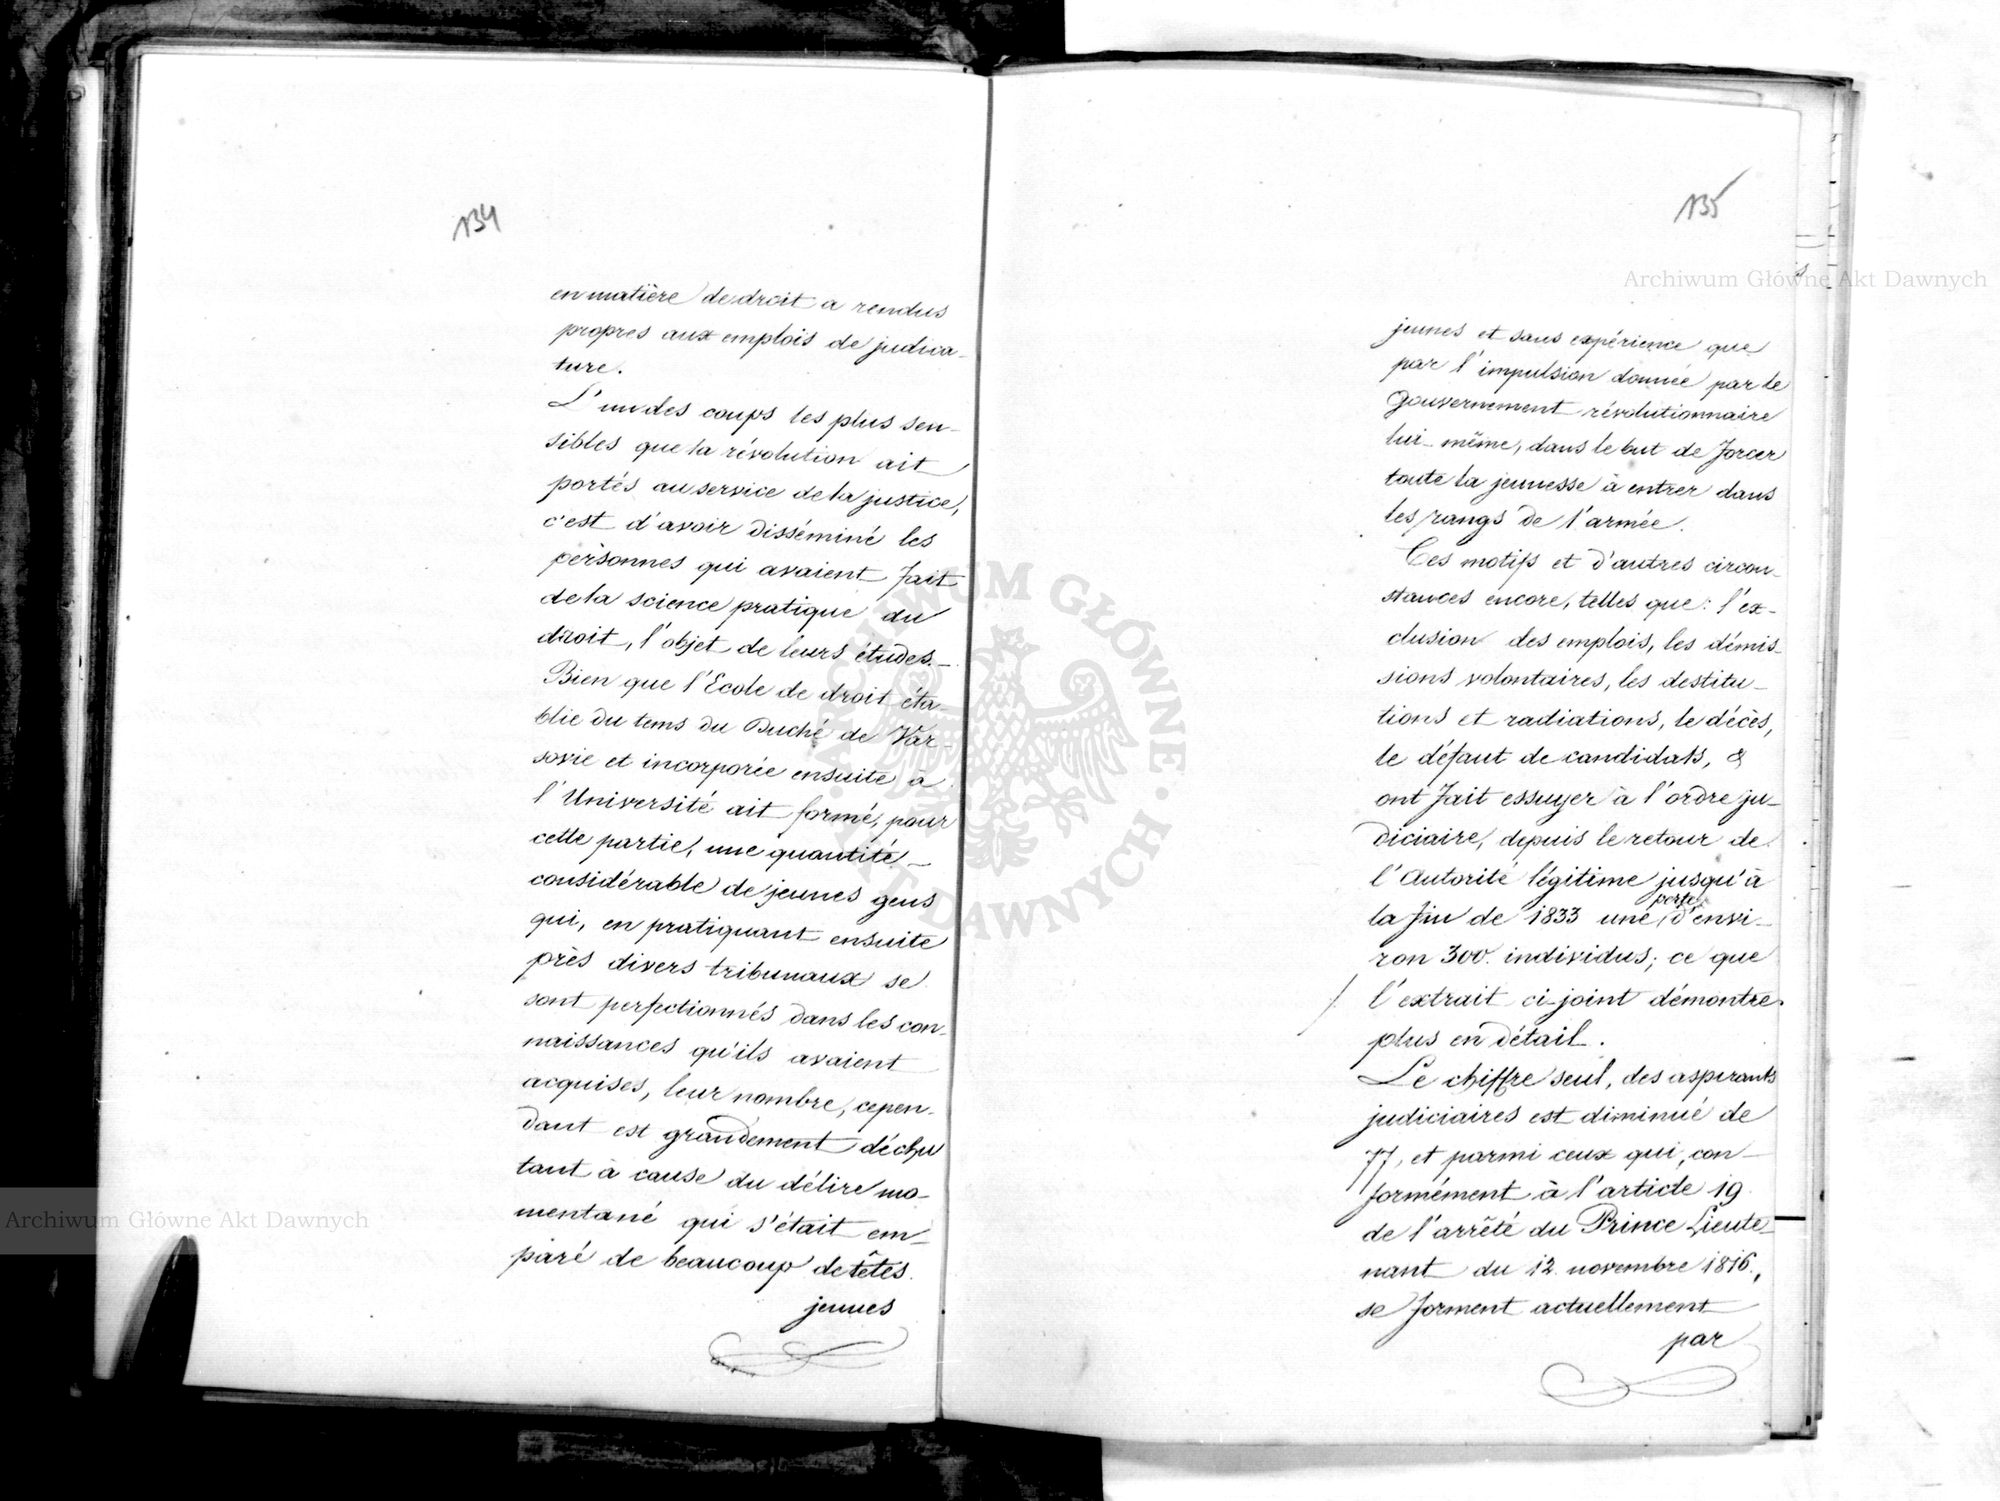 134
en matière de droit a rendus
propres aux emplois de judica-
ture.
L'un des coups les plus sen-
sibles que la révolution ait
portés au service de la justice,
c'est d'avoir disséminé les
personnes qui avaient fait
de la science pratique du
droit, l'objet de leurs études.-
Bien que l'Ecole de droit éta-
blie du tems du Duché de Var-
sovie et incorporée ensuite à
l'Université ait formé, pour
cette partie, une quantité-
considérable de jeunes gens
qui, en pratiquant ensuite
près divers tribunaux se
sont perfectionnés dans les con-
naissances qu'ils avaient
acquises, leur nombre, cepen-
dant est grandement déchu
tant à cause du délire mo-
mentané qui s'était em-
paré de beaucoup de têtes.
jeunes
135
jeunes et sans expérience que
par l'impulsion donnée par le
Gouvernement révolutionnaire
lui-même, dans le but de forcer
toute la jeunesse à entrer dans
les rangs de l'armée.
Ces motifs et d'autres circon-
stances encore, telles que: l'ex-
clusion des emplois, les démis-
sions volontaires, les destitu-
tions et radiations, le décès,
le défaut de candidats, &
ont fait essuyer à l'ordre ju-
diciaire, depuis le retour de
l'Autorité légitime jusqu'à
la fin de 1833 une perte d'envi-
ron 300. individus; ce que
l'extrait ci-joint démontre
plus en détail.
Le chiffre seul, des aspirants
judiciaires est diminué de
77, et parmi ceux qui, con-
formément à l'article 19
de l'arrêté du Prince Lieute-
nant du 12 novembre 1816.,
se forment actuellement
par
Archiwum Główne Akt Dawnych
Archiwum Główne Akt Dawnych
ARCHIWUM GŁÓWNE AKT DAWNYCH